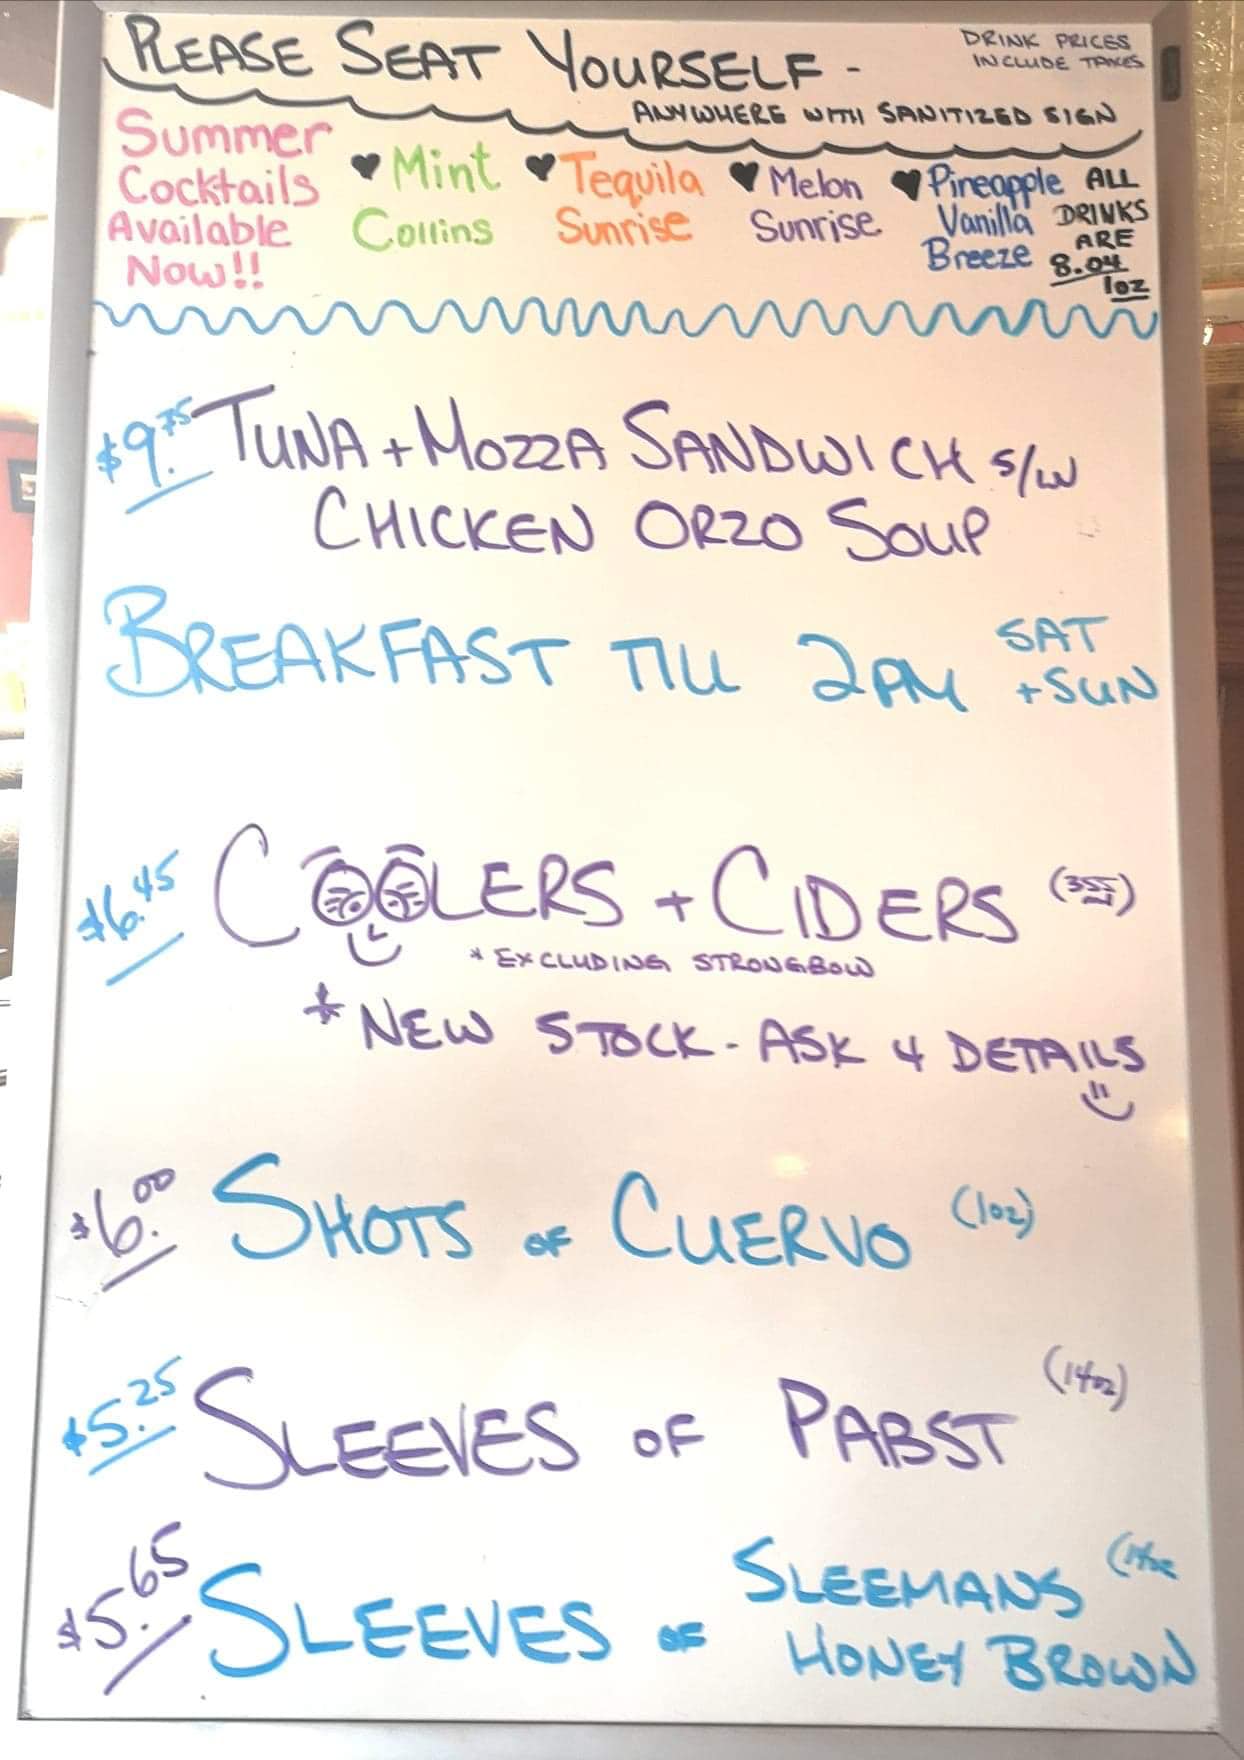 PLEASE SEAT YOURSELF -
DRINK PRICES
INCLUDE TAXES
ANYWHERE WITH SANITIZED SIGN
Summer
Cocktails
Available
Now!!
♥ Mint
Collins
♥ Tequila
Sunrise
♥ Melon
Sunrise
♥ Pineapple
Vanilla
Breeze
ALL
DRINKS
ARE
8.04
1oz
$9.75 TUNA + MOZZA SANDWICH S/W
CHICKEN ORZO SOUP
BREAKFAST TILL 2PM SAT
+ SUN
$6.45 COOLERS + CIDERS (355ml)
* EXCLUDING STRONGBOW
* NEW STOCK - ASK 4 DETAILS
$6.00 SHOTS OF CUERVO (1oz)
$5.25 SLEEVES OF PABST (14oz)
$5.65 SLEEVES OF SLEEMANS (14oz
HONEY BROWN